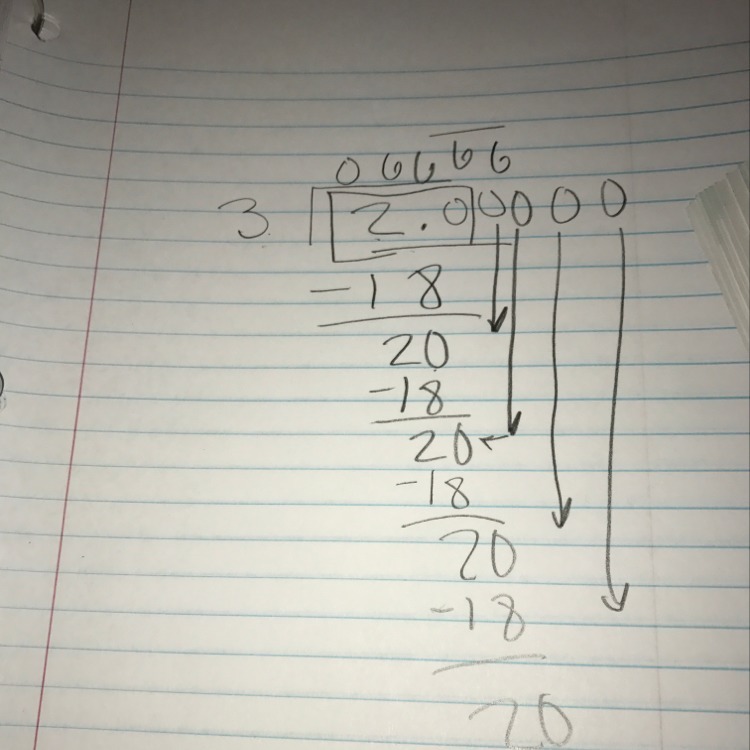 06666
3 2.00000
-18
20
-18
20
-18
20
-18
20